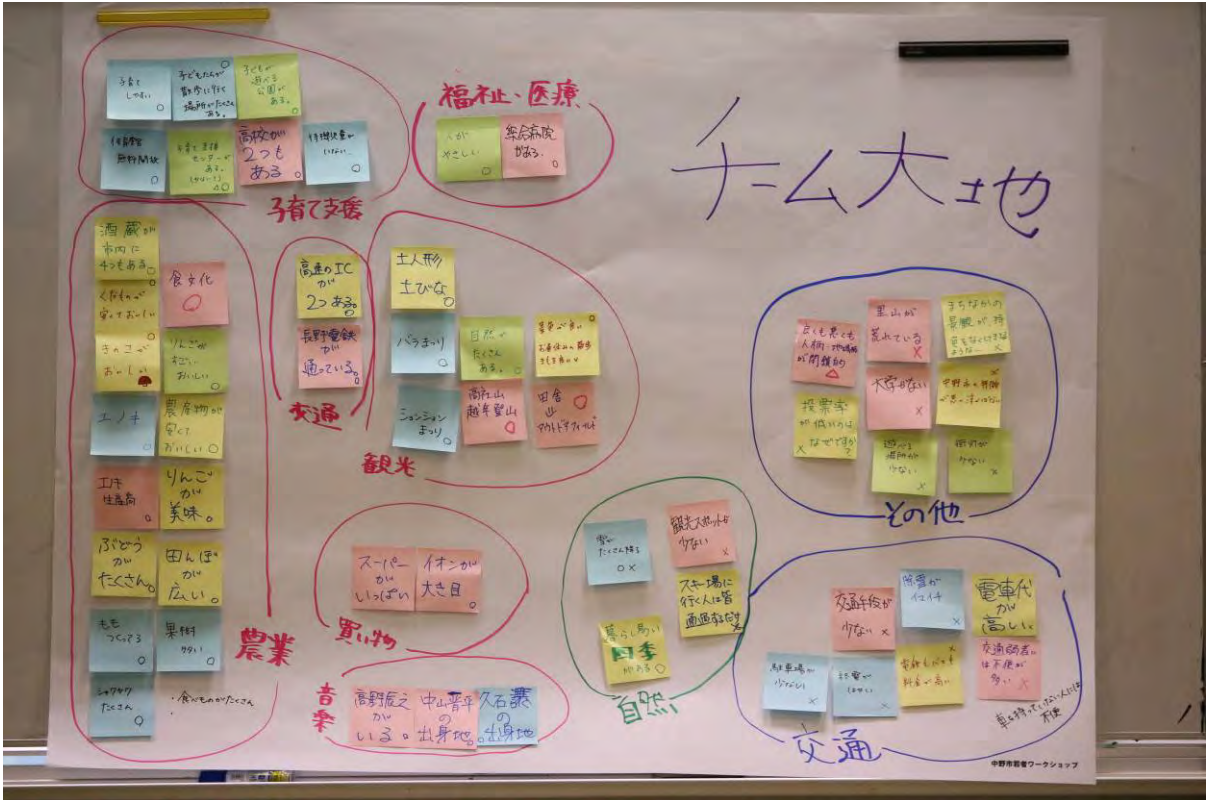 チーム大地
子育て
しやすい
子どもたちが
散歩に行く
場所がたくさん
ある。
子どもが
遊べる
公園が
ある。
保育園
無料開放
子育て支援
センターが
ある。
高校が
2つも
ある
待機児童が
いない
子育て支援
福祉・医療
人が
やさしい
総合病院
がある。
酒蔵が
市内に
4つもある。
食文化
くだものが
安くておいしい
きのこが
おいしい
りんごが
すごい
おいしい
エノキ
農産物が
安くて
おいしい
エノキ
生産高
りんごが
美味。
ぶどうが
たくさん。
田んぼが
広い。
もも
つくってる
果樹
シャクヤク
たくさん
・食べものがたくさん
農業
高速のIC
が
2つある。
長野電鉄
が
通っている。
交通
土人形
土びな
バラまつり
自然が
たくさん
ある。
ションション
まつり
高社山
越年登山
田舎
山
アウトドアフィールド
観光
スーパー
が
いっぱい
イオンが
大き目
買い物
音楽
高野辰之
が
いる。
中山晋平
の
出身地。
久石譲
の
出身地
雪が
たくさん降る
○×
観光スポットが
少ない
×
スキー場に
行く人に皆
通過するだけ
暮らし易い
四季
がある
自然
良くも悪くも
人柄・地域柄
が閉鎖的
里山が
荒れている
×
まちなかの
景観が、特
色をなくしてきた
ような…
×
大学がない
×
投票率
が低いのは
なぜですか
?
×
遊べる
場所が
少ない
×
街灯が
少ない
×
その他
交通手段が
少ない
×
除雪が
イマイチ
×
電車代
が
高い。
駐車場が
少ない
×
料金が高い
×
交通弱者に
は不便が
多い
×
車を持っていない人には
不便
交通
中野市若者ワークショップ